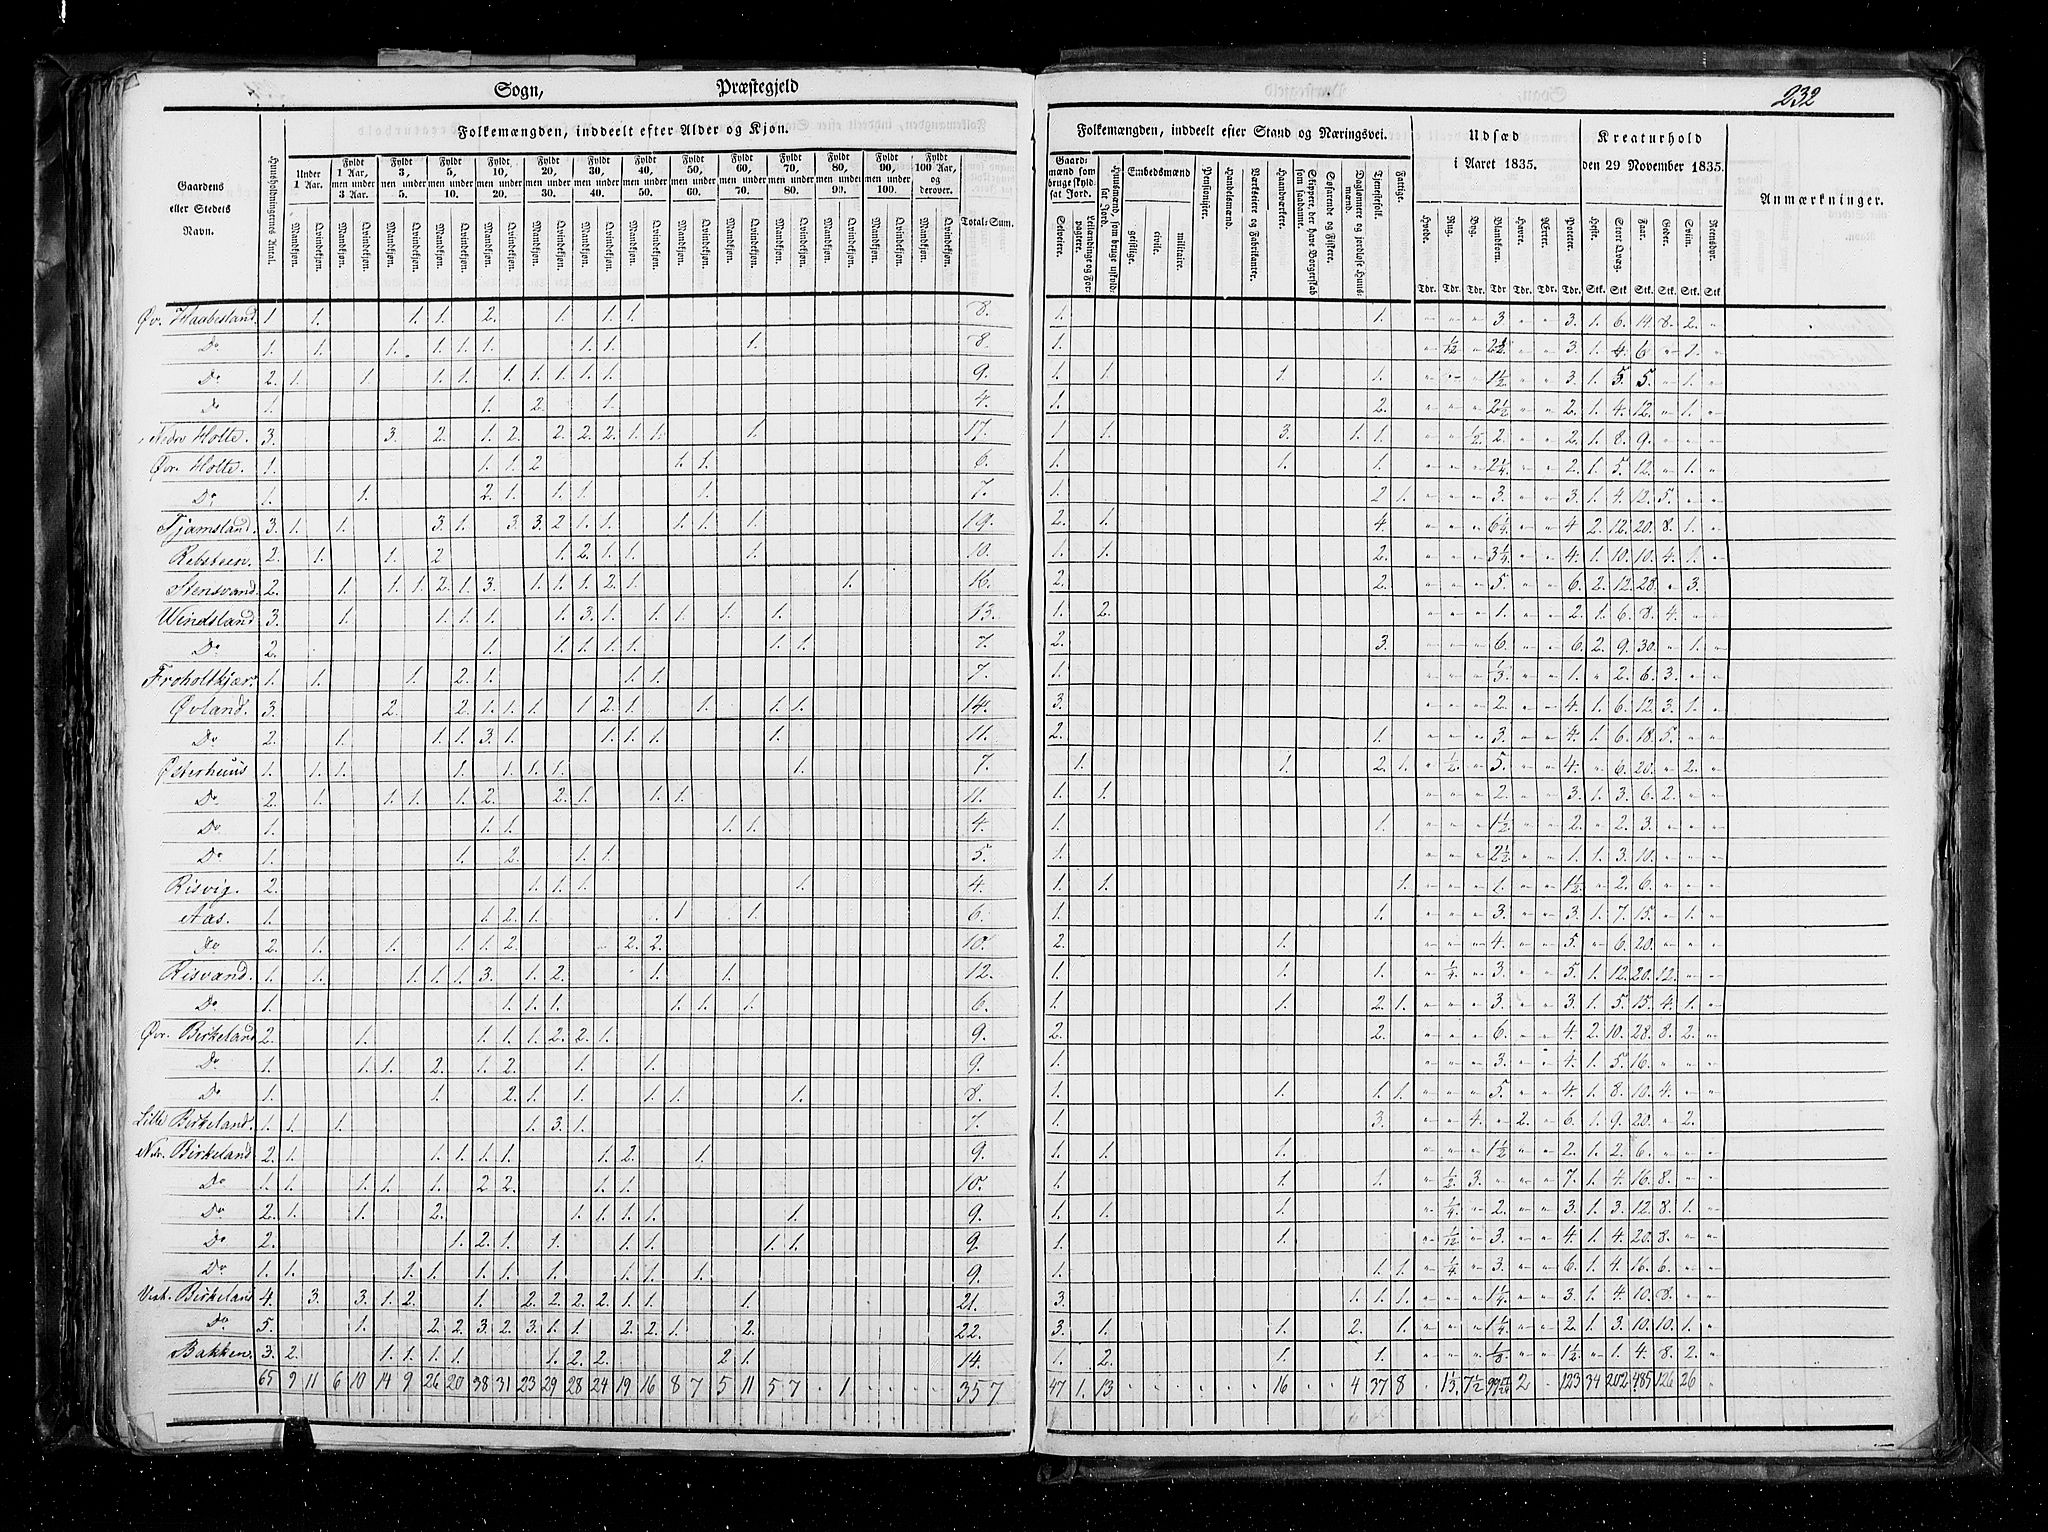 Sogn, Præstegjeld
232
Folkemængden, inddeelt efter Alder og Kjøn.
Gaardens eller Stedets Navn.
Huusholdningernes Antal.
Under 1 Aar.
Fyldt 1 Aar, men under 3 Aar.
Fyldt 3, men under 5.
Fyldt 5, men under 10.
Fyldt 10, men under 20.
Fyldt 20, men under 30.
Fyldt 30, men under 40.
Fyldt 40, men under 50.
Fyldt 50, men under 60.
Fyldt 60, men under 70.
Fyldt 70, men under 80.
Fyldt 80, men under 90.
Fyldt 90, men under 100.
Fyldt 100 Aar, og derover.
Mandkjøn. Qvindekjøn.
Total-Sum.
Folkemængden, inddeelt efter Stand og Næringsvei.
Gaardmænd som bruge skyldsat Jord.
Selveiere.
Leilændinge og Forpagtere.
Huusmænd, som bruge uskyldsat Jord.
Embedsmænd
geistlige.
civile.
militaire.
Pensionister.
Handelsmænd.
Værkseiere og Fabrikanter.
Haandværkere.
Skippere, der have Borgerskab som saadanne.
Søfarende og Fiskere.
Dagløhnere og jordløse Huusmænd.
Tjenestefolk.
Fattige.
Udsæd i Aaret 1835.
Hvede. Rug. Byg. Blandkorn. Havre. Ærter. Poteter.
Tdr. Tdr. Tdr. Tdr Tdr. Tdr. Tdr.
Kreaturhold den 29 November 1835.
Heste. Stort Qvæg. Faar. Geder. Sviin. Reensdyr.
Stk. Stk Stk. Stk. Stk. Stk
Anmærkninger.
Øv. Haabesland. 1. 1. 1. 1. 2. 1. 1. 1. 8. 1. 1. 3. 3. 1. 6. 14. 8. 2.
Do 1. 1. 1. 1. 1. 1. 1. 1. 1. 1. 8. 1. 1/12 2 1/2. 3. 1. 4. 6 1.
Do 2. 1. 1. 1. 1. 1. 1. 1. 1. 1. 9. 1. 1. 1. 1. 1 1/2. 3. 1. 5. 5. 1.
Do 1. 1. 2. 1. 4. 1. 2. 2 1/2. 2. 1. 4. 12. 1.
Nedre Holte. 3. 3. 2. 1. 2. 2. 2. 2. 1. 1. 1. 17. 1. 1. 3. 1. 1. 1/2. 2. 2. 1. 8. 9.
Øv. Holte. 1. 1. 1. 2 1. 1. 6. 1. 1. 1. 2 1/4. 2. 1. 5. 12. 1.
Do 1. 1. 2. 1. 1. 1. 1. 7. 1. 2 1. 3. 3. 1. 4. 12. 5.
Tjamsland. 3. 1. 1. 3. 1. 3. 3. 2 1. 1. 1. 1. 1. 19. 2. 1. 4. 6 1/4. 4 2. 12. 20. 8. 1.
Rebsteen. 2. 1. 1. 2 1. 2. 1. 1. 1. 10. 1. 1. 2. 3 1/4. 4. 1. 10. 10. 4. 1.
Stensvand. 2. 1. 1. 1. 2. 1. 3. 1. 1. 1. 2. 1. 1. 16. 2. 2. 5. 6. 2. 12. 28. 3.
Windsland 3. 1. 1. 1. 1. 1. 3. 1. 1. 1. 1. 1. 13. 1. 2. 1. 2. 1. 6. 8. 4.
Do 2. 1. 1. 1. 1. 1. 1. 1. 7. 2. 3. 6. 6. 2. 9. 30. 1.
Froholtkjær. 1. 1. 1. 2. 1. 1. 1. 7. 1. 1/3. 1. 2. 6. 3.
Øvland. 3. 2. 2. 1. 1. 1. 1. 2. 1. 1. 1. 1. 14. 3. 2. 4. 1. 6. 12. 3. 1.
Do 2. 1. 1. 1. 3. 1. 1. 1. 1. 1. 11. 2. 1. 3. 4. 1. 6. 18. 5.
Østerhuus 1. 1. 1. 1. 1. 1. 1. 1. 7. 1. 1. 2. 1. 1/2. 5. 4. 6. 20. 2.
Do 2. 1. 1. 1. 1. 2. 2. 1. 1. 1. 11. 1. 1. 2. 3. 1. 3. 6. 2.
Do 1. 1. 1. 1. 1. 4. 1. 1. 1 1/2. 2. 2. 3.
Do 1. 1. 2. 1. 1. 5. 1. 2 1/2. 1. 1. 3. 10.
Risvig. 2. 1. 1. 1. 1. 4. 1. 1. 1. 1. 1 1/2. 2. 6.
Aas. 1. 1. 2. 1. 1. 1. 6. 1. 1. 3. 3. 1. 7. 15. 1.
Do 2. 1. 1. 1. 1. 2. 2. 2. 10. 2. 1. 4. 5. 6. 20.
Risvand. 1. 1. 1. 1. 1. 3. 1. 2. 1. 1. 12. 1. 1. 1. 1/4. 3. 5. 1. 12. 20. 12.
Do 1. 1. 1. 1. 1. 1. 1. 6. 1. 1. 2. 1. 3. 3. 1. 5. 15. 4. 1.
Øv. Birkeland 2. 1. 1. 1. 1. 2. 2. 1. 9. 2. 2. 6. 4. 2. 10. 28. 8. 2.
Do 1. 1. 1. 2. 1. 2. 1. 1. 9. 3. 4. 1. 5. 16.
Do 1. 1. 2. 1. 1. 1. 1. 1. 8. 1. 1. 1. 5. 4. 1. 8. 10. 4.
Lille Birkeland. 1. 1. 1. 1. 3. 1. 7. 3. 4. 2. 6. 1. 9. 20. 2.
Ndr. Birkeland 2. 1. 1. 1. 1. 1. 1. 2. 1. 9. 1. 1. 1. 1 1/2. 2. 1. 2. 6.
Do 1. 1. 1. 1. 1. 2 2. 1. 1. 10. 1. 1. 1. 1/2. 3. 7. 1. 4. 16. 8.
Do 2. 1. 1. 2. 1. 1. 1. 1. 1. 9. 1. 1. 1. 1/4. 2. 3. 1. 3. 12. 8. 1.
Do 2. 1. 2. 1. 1. 1. 1. 1. 1. 9. 1. 1. 1/12 3. 4. 1. 4. 20. 8.
Do 1. 1. 1. 1. 1. 1. 1. 1. 1. 1. 9. 1. 1. 1. 1/4. 3. 6. 1. 4. 16. 6.
Vest. Birkeland 4. 3. 3. 1. 2. 1. 2. 2. 2. 2. 1. 1. 1. 21. 3. 1. 1. 1. 1 1/4. 3. 1. 4. 10. 8.
Do 5. 1. 2. 2. 3. 2. 3. 1. 1. 2. 2. 1. 2. 22. 3. 1. 1. 2. 1. 1 1/4. 2. 1. 3. 10. 10. 1.
Bakken. 3. 2. 1. 1. 1. 1. 1. 2. 2. 2 1. 14. 1. 2. 1. 1. 1/8. 1 1/2. 1. 4. 8. 2.
65 9 11 6 10 14 9 26 20 38 31 23 29 28 24 19 16 8 7 5 11 5 7 1 357 47 1. 13 16 4 37 8 7 1/2 2 123 34 202 485 126 26